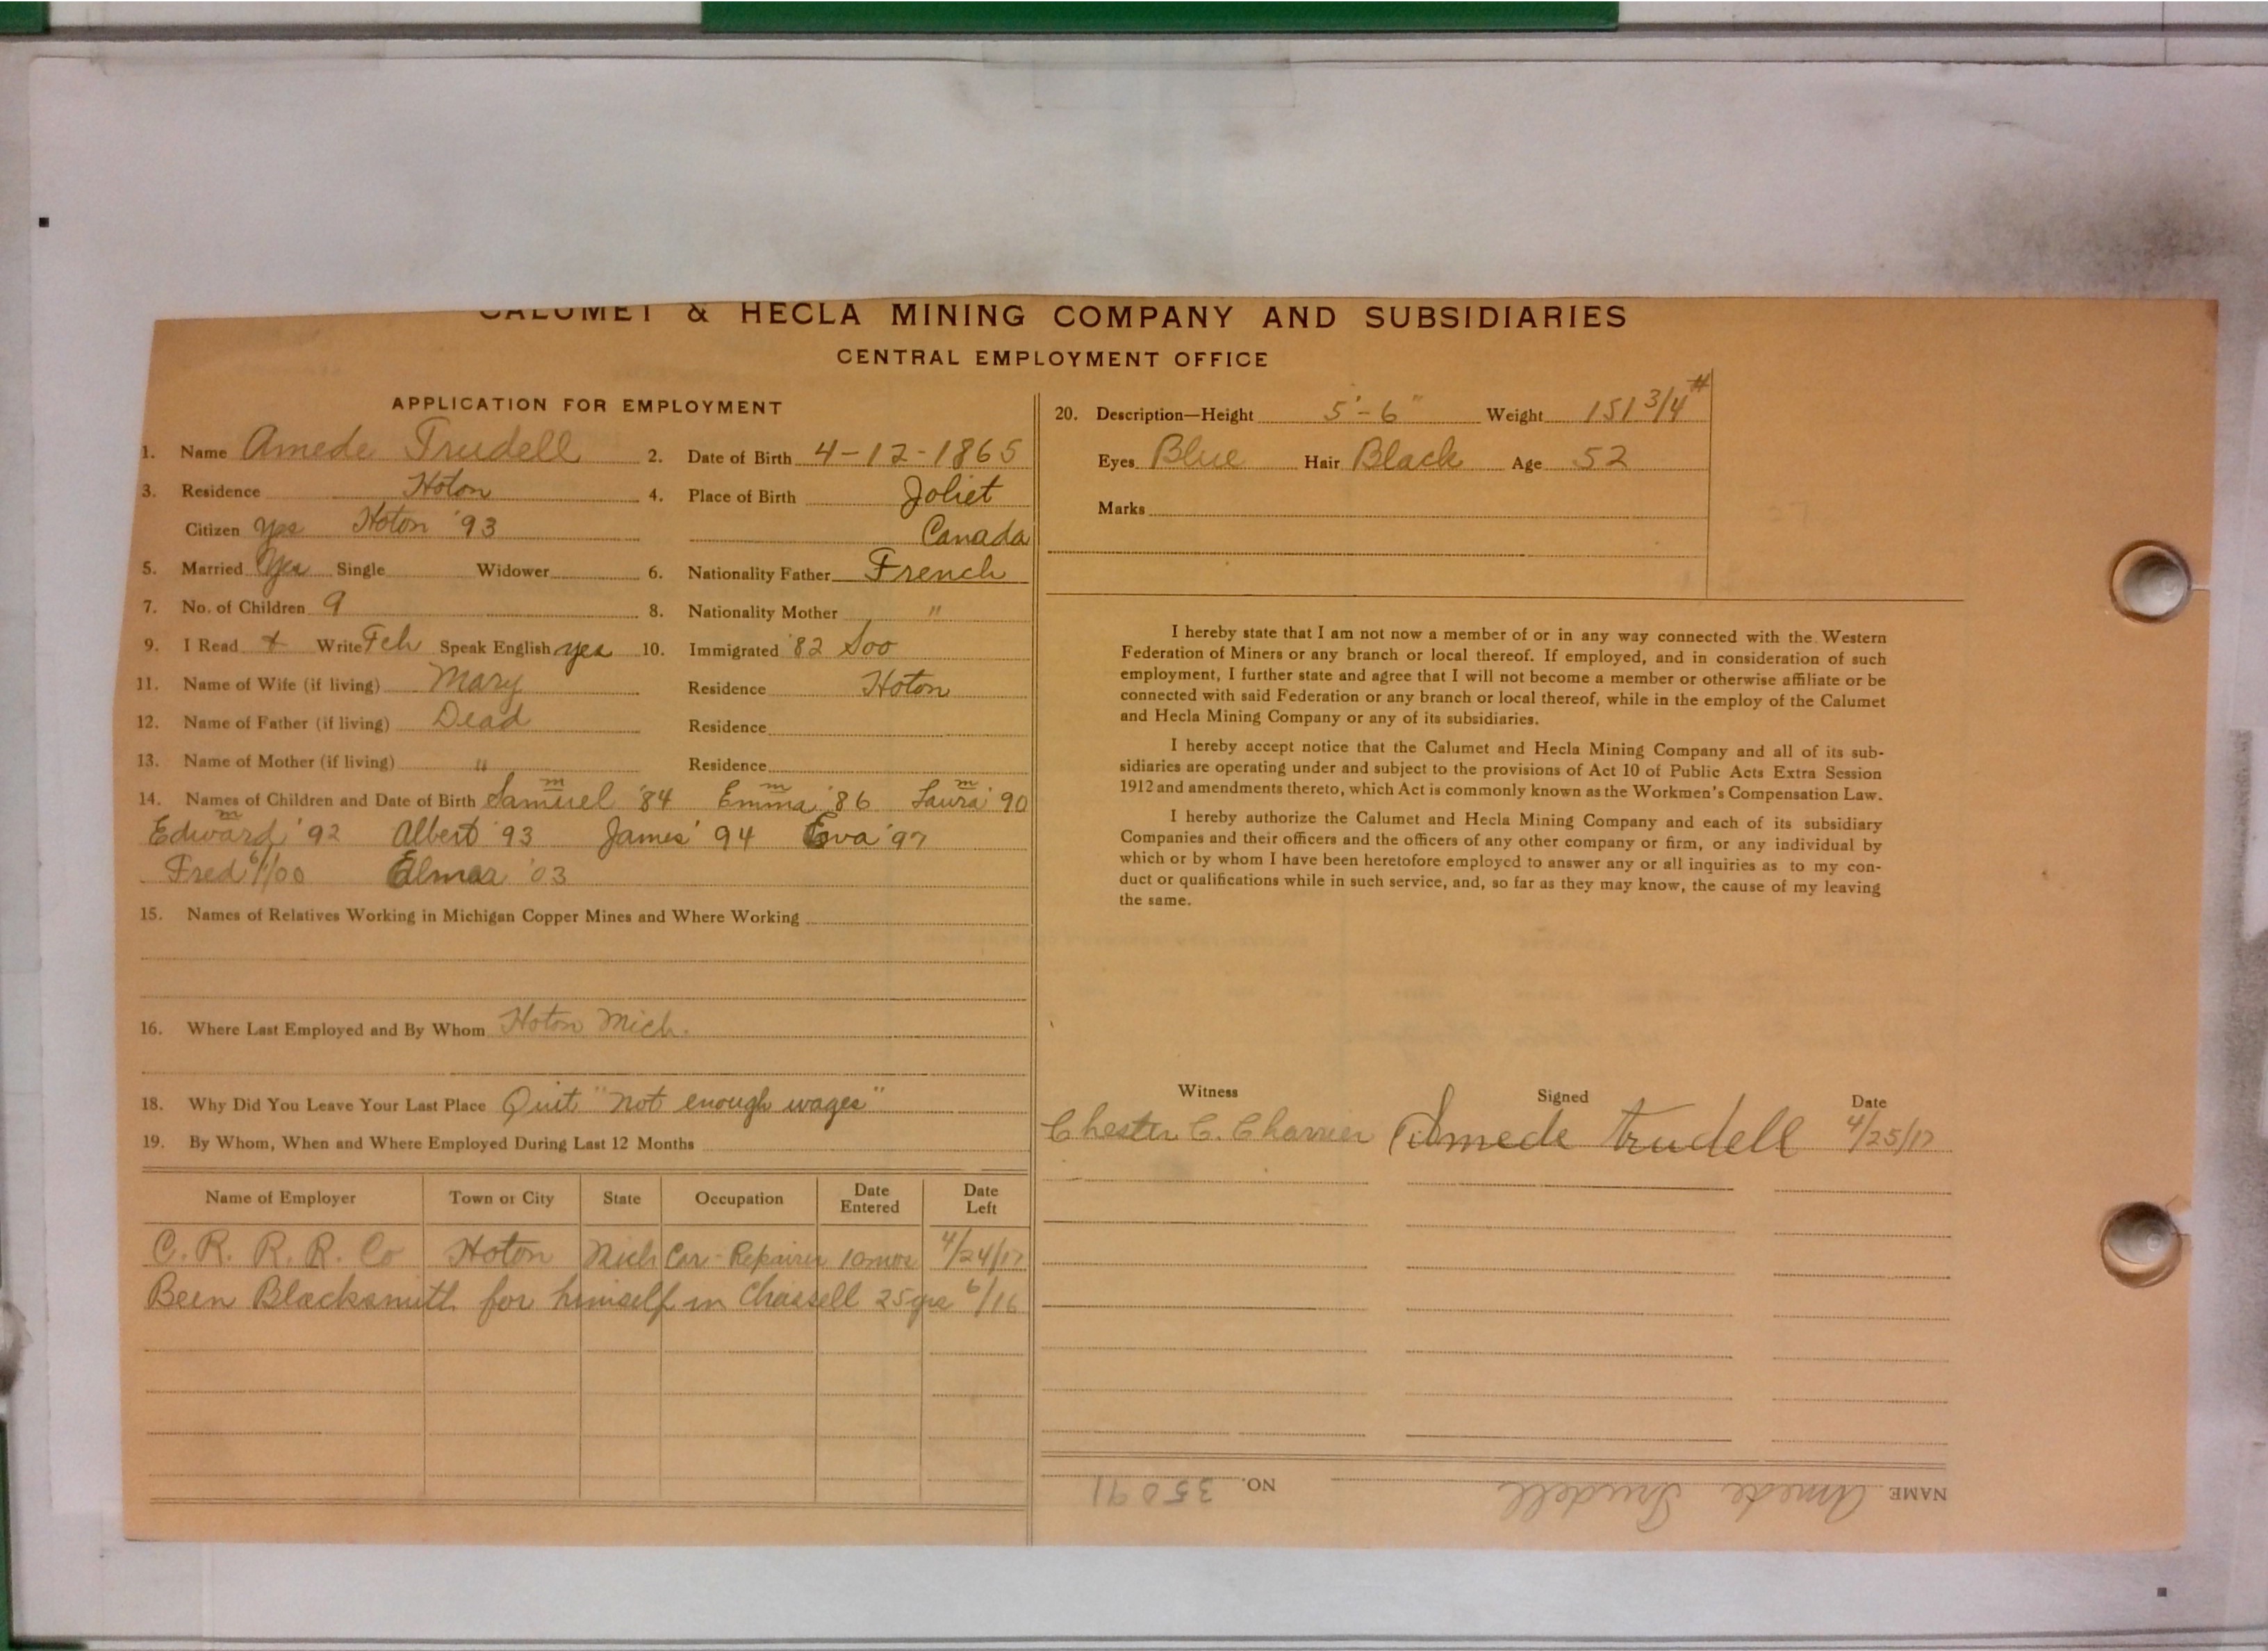 CALUMET & HECLA MINING COMPANY AND SUBSIDIARIES
CENTRAL EMPLOYMENT OFFICE
APPLICATION FOR EMPLOYMENT
1. Name Amede Trudell 2. Date of Birth 4-12-1865
3. Residence Hoton 4. Place of Birth Joliet
Citizen Yes Hoton '93 Canada
5. Married Yes Single Widower 6. Nationality Father French
7. No. of Children 9 8. Nationality Mother "
9. I Read & Write Fch Speak English yes 10. Immigrated '82 Soo
11. Name of Wife (if living) Mary Residence Hoton
12. Name of Father (if living) Dead Residence
13. Name of Mother (if living) " Residence
m m m
14. Names of Children and Date of Birth Samuel '84 Emma '86 Laura '90
m
Edward '92 Albert '93 James '94 Eva '97
Fred 6/1/00 Elmer '03
15. Names of Relatives Working in Michigan Copper Mines and Where Working
16. Where Last Employed and By Whom Hoton Mich.
18. Why Did You Leave Your Last Place Quit "not enough wages"
19. By Whom, When and Where Employed During Last 12 Months
Name of Employer Town or City State Occupation Date Entered Date Left
C. R. R. R. Co Hoton Mich Car-Repairer 10 mos 4/24/17
Been Blacksmith for himself in Chassell 25 yrs 6/16
20. Description—Height 5'-6" Weight 151 3/4 #
Eyes Blue Hair Black Age 52
Marks
I hereby state that I am not now a member of or in any way connected with the Western
Federation of Miners or any branch or local thereof. If employed, and in consideration of such
employment, I further state and agree that I will not become a member or otherwise affiliate or be
connected with said Federation or any branch or local thereof, while in the employ of the Calumet
and Hecla Mining Company or any of its subsidiaries.
I hereby accept notice that the Calumet and Hecla Mining Company and all of its sub-
sidiaries are operating under and subject to the provisions of Act 10 of Public Acts Extra Session
1912 and amendments thereto, which Act is commonly known as the Workmen's Compensation Law.
I hereby authorize the Calumet and Hecla Mining Company and each of its subsidiary
Companies and their officers and the officers of any other company or firm, or any individual by
which or by whom I have been heretofore employed to answer any or all inquiries as to my con-
duct or qualifications while in such service, and, so far as they may know, the cause of my leaving
the same.
Witness Signed Date
Chester C. Amede Trudell 4/25/17
NAME Amede Trudell NO. 35091